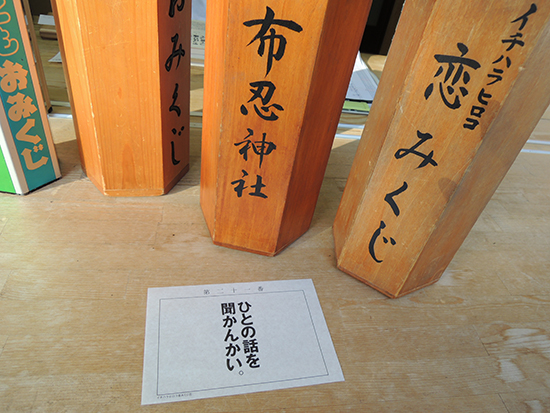 おみくじ
おみくじ
布忍神社
イチハラヒロコ
恋みくじ
第二十一番
ひとの話を
聞かんかい。